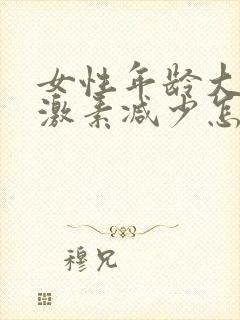 女性年龄大
激素减少怎
穆兄